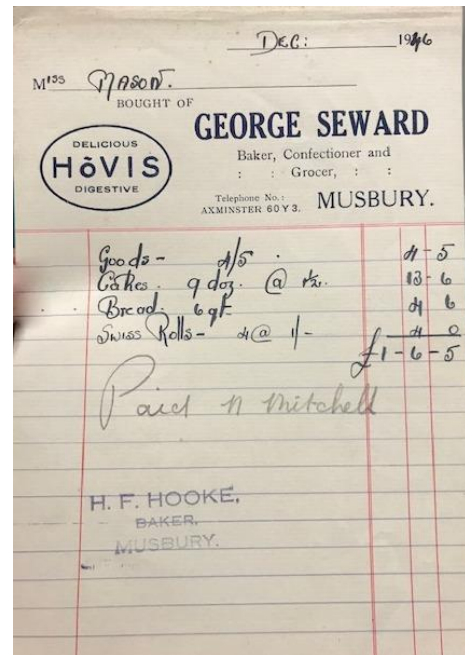 DEC: 1946
Miss MASON.
BOUGHT OF
GEORGE SEWARD
DELICIOUS
HōVIS
DIGESTIVE
Baker, Confectioner and
: : Grocer, : :
Telephone No.:
AXMINSTER 60Y3.
MUSBURY.
Goods - 4/5 . 4-5
Cakes . 9 doz. @ 1½. 13-6
Bread. 6 qt. 4 6
Swiss Rolls - 4 @ 1/- 4 0
£1-6-5
Paid N Mitchell
H. F. HOOKE,
BAKER.
MUSBURY.